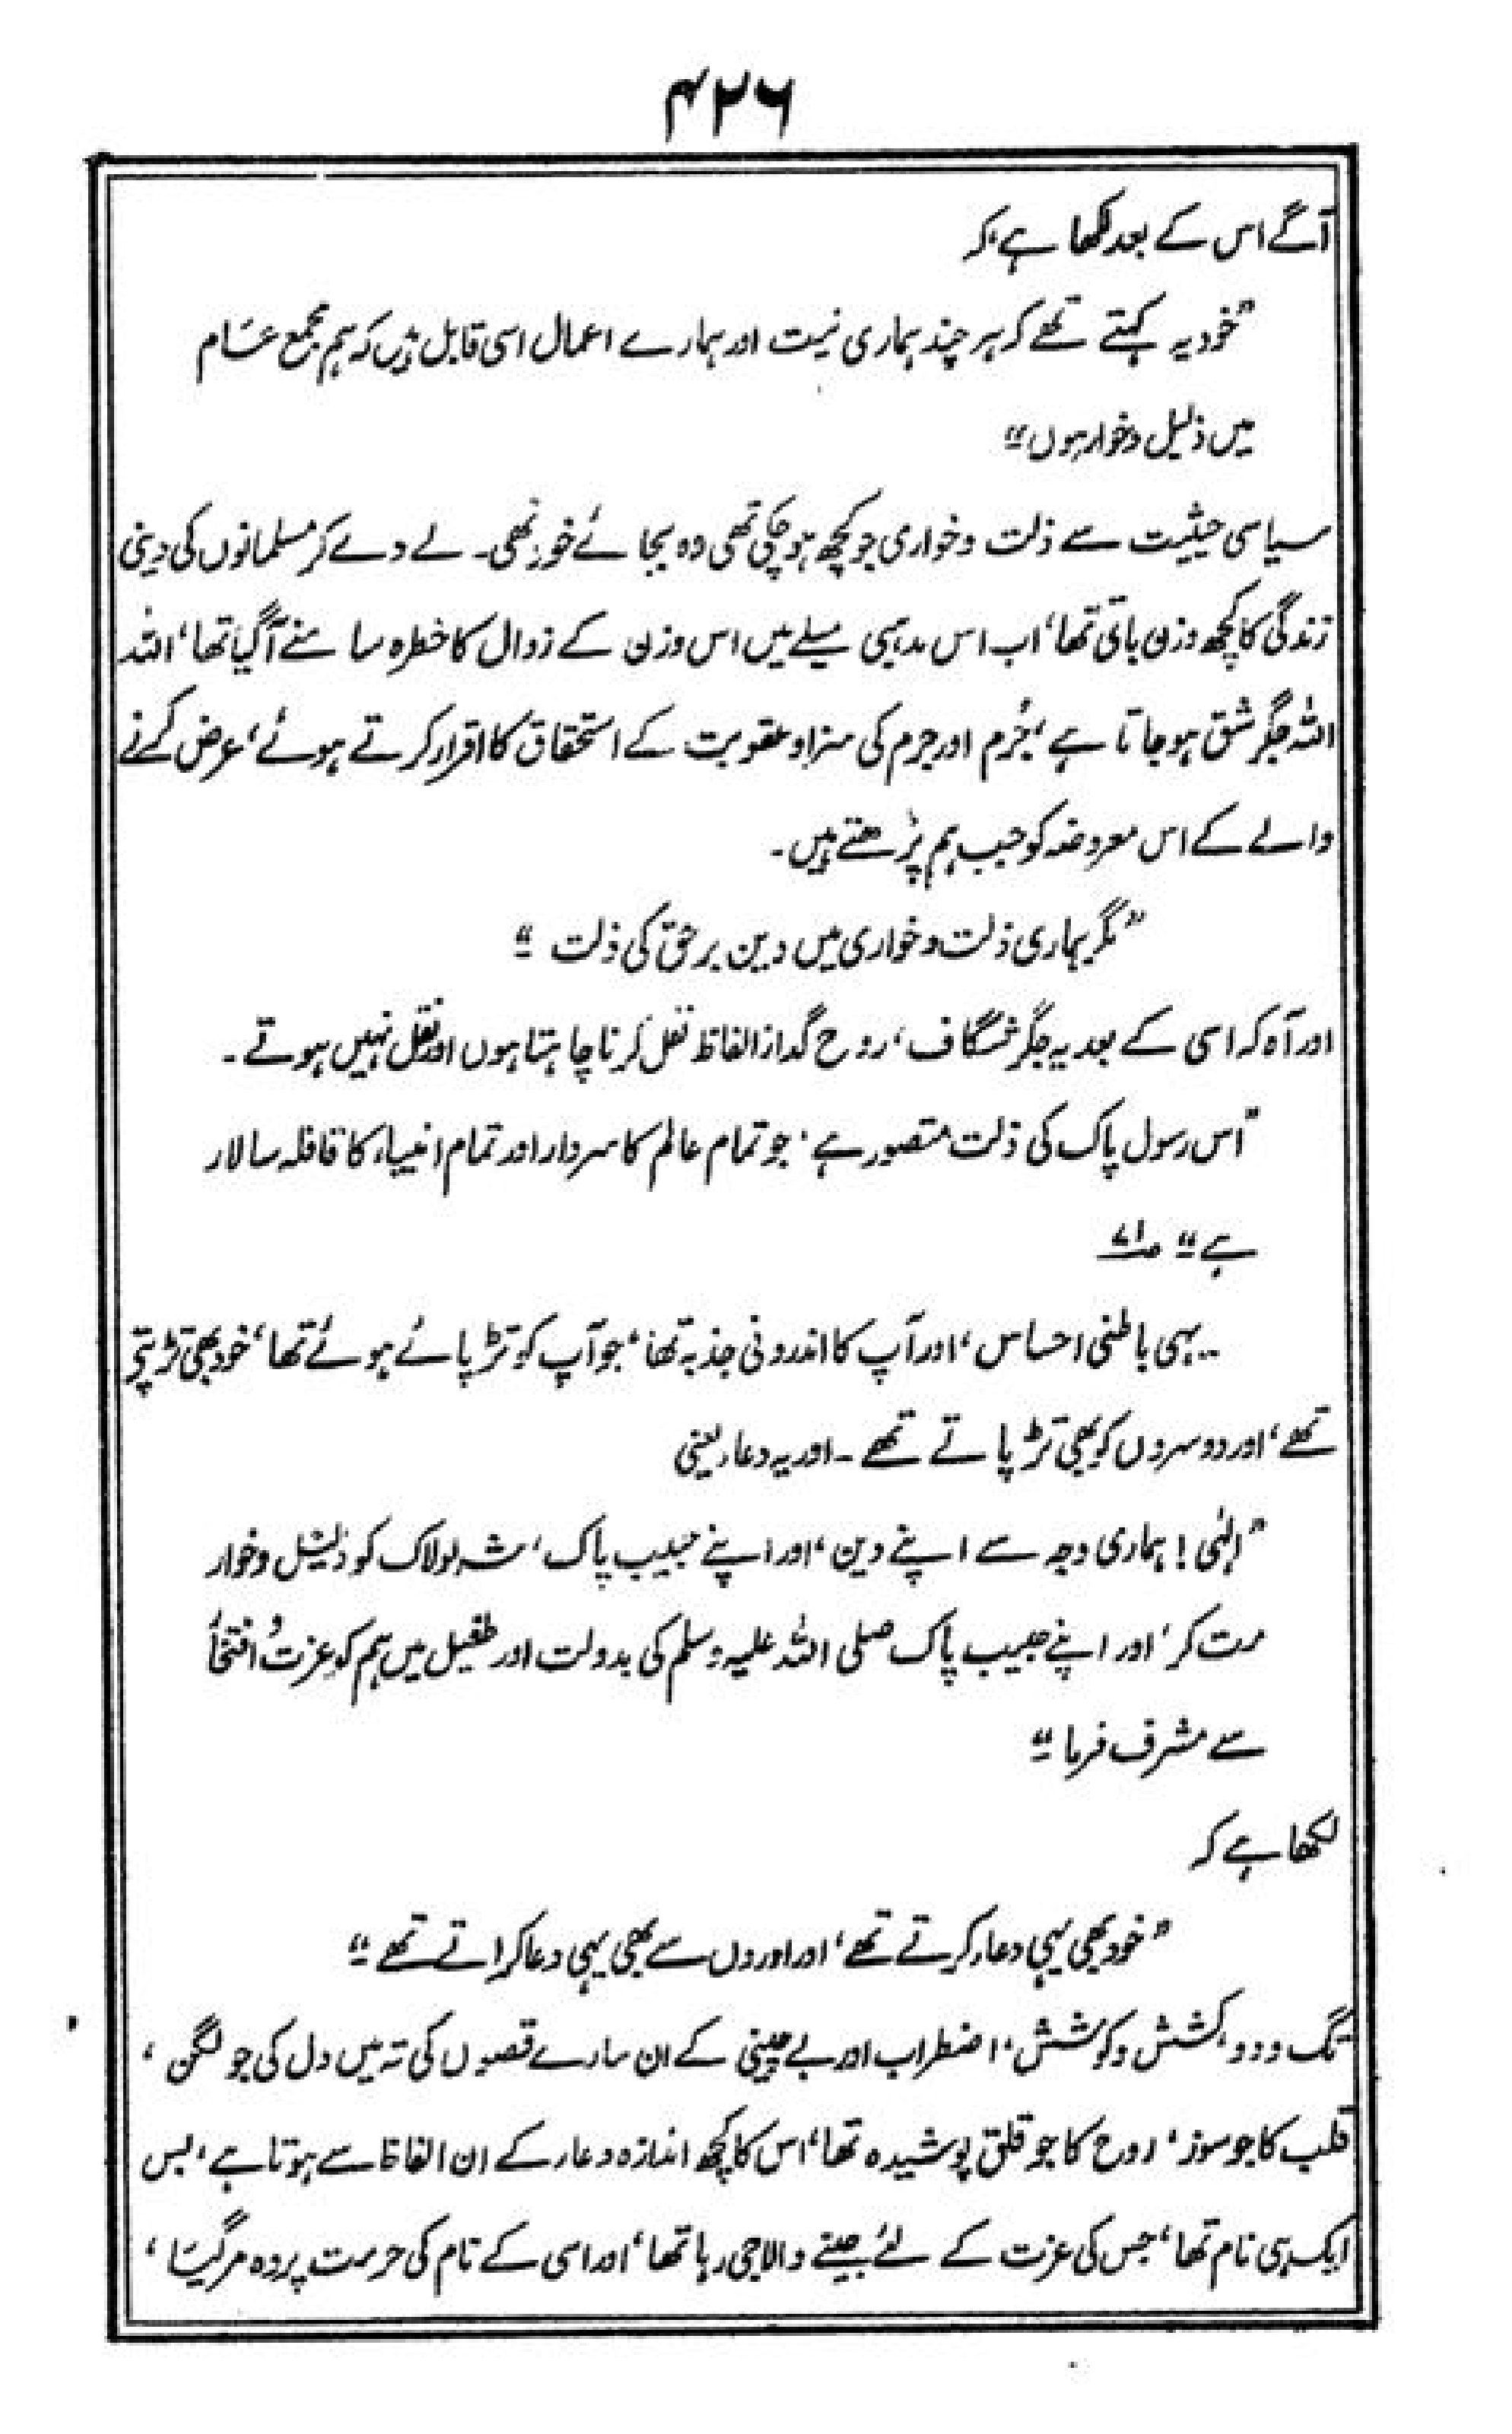 ۴۲۶
آگے اس کے بعد لکھا ہے، کہ
"خود یہ کہتے تھے کہ ہر چند ہماری نیت اور ہمارے اعمال اسی قابل ہیں کہ ہم مجمع عام
میں ذلیل وخوار ہوں"
سیاسی حیثیت سے ذلت وخواری جو کچھ ہو چکی تھی وہ بجائے خود تھی۔ لے دے کر مسلمانوں کی دینی
زندگی کا کچھ وزن باقی تھا، اب اس مذہبی میلے میں اس وزن کے زوال کا خطرہ سامنے آگیا تھا، اللہ
اللہ جگر شق ہو جاتا ہے، جُرم اور جرم کی سزا وعقوبت کے استحقاق کا اقرار کرتے ہوئے، عرض کرنے
والے کے اس معروضہ کو جب ہم پڑھتے ہیں۔
"مگر ہماری ذلت وخواری میں دین برحق کی ذلت"
اور آہ کہ اسی کے بعد یہ جگر شگاف، روح گداز الفاظ نقل کرنا چاہتا ہوں اور نقل نہیں ہوتے۔
"اس رسول پاک کی ذلت متصور ہے، جو تمام عالم کا سردار اور تمام انبیاء کا قافلہ سالار
ہے" ص۷۱
۔۔ یہی باطنی احساس، اور آپ کا اندرونی جذبہ تھا، جو آپ کو تڑپائے ہوئے تھا، خود بھی تڑپتے
تھے، اور دوسروں کو بھی تڑپاتے تھے۔ اور یہ دعاء یعنی
"الٰہی! ہماری وجہ سے اپنے دین، اور اپنے حبیب پاک، شہ لولاک کو ذلیل وخوار
مت کر، اور اپنے حبیب پاک صلی اللہ علیہ وسلم کی بدولت اور طفیل میں ہم کو عزت و افتخار
سے مشرف فرما"
لکھا ہے کہ
"خود بھی یہی دعاء کرتے تھے، اور اوروں سے بھی یہی دعا کراتے تھے"
تگ و دو، کشش وکوشش، اضطراب اور بے چینی کے ان سارے قصوں کی تہ میں دل کی جو لگن،
قلب کا جو سوز، روح کا جو قلق پوشیدہ تھا، اس کا کچھ اندازہ دعاء کے ان الفاظ سے ہوتا ہے، بس
ایک ہی نام تھا، جس کی عزت کے لئے جینے والا جی رہا تھا، اور اسی کے نام کی حرمت پر وہ مر گیا،